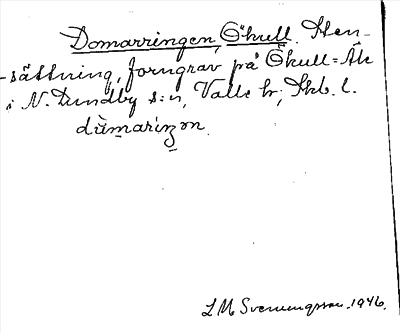 Domarringen, Ökull. Sten-
-sättning, forngrav på Ökull=Äle
i N. Lundby s:n, Valle hr; Skb. l.
dùmariŋən.
L M Svenungsson. 1946.